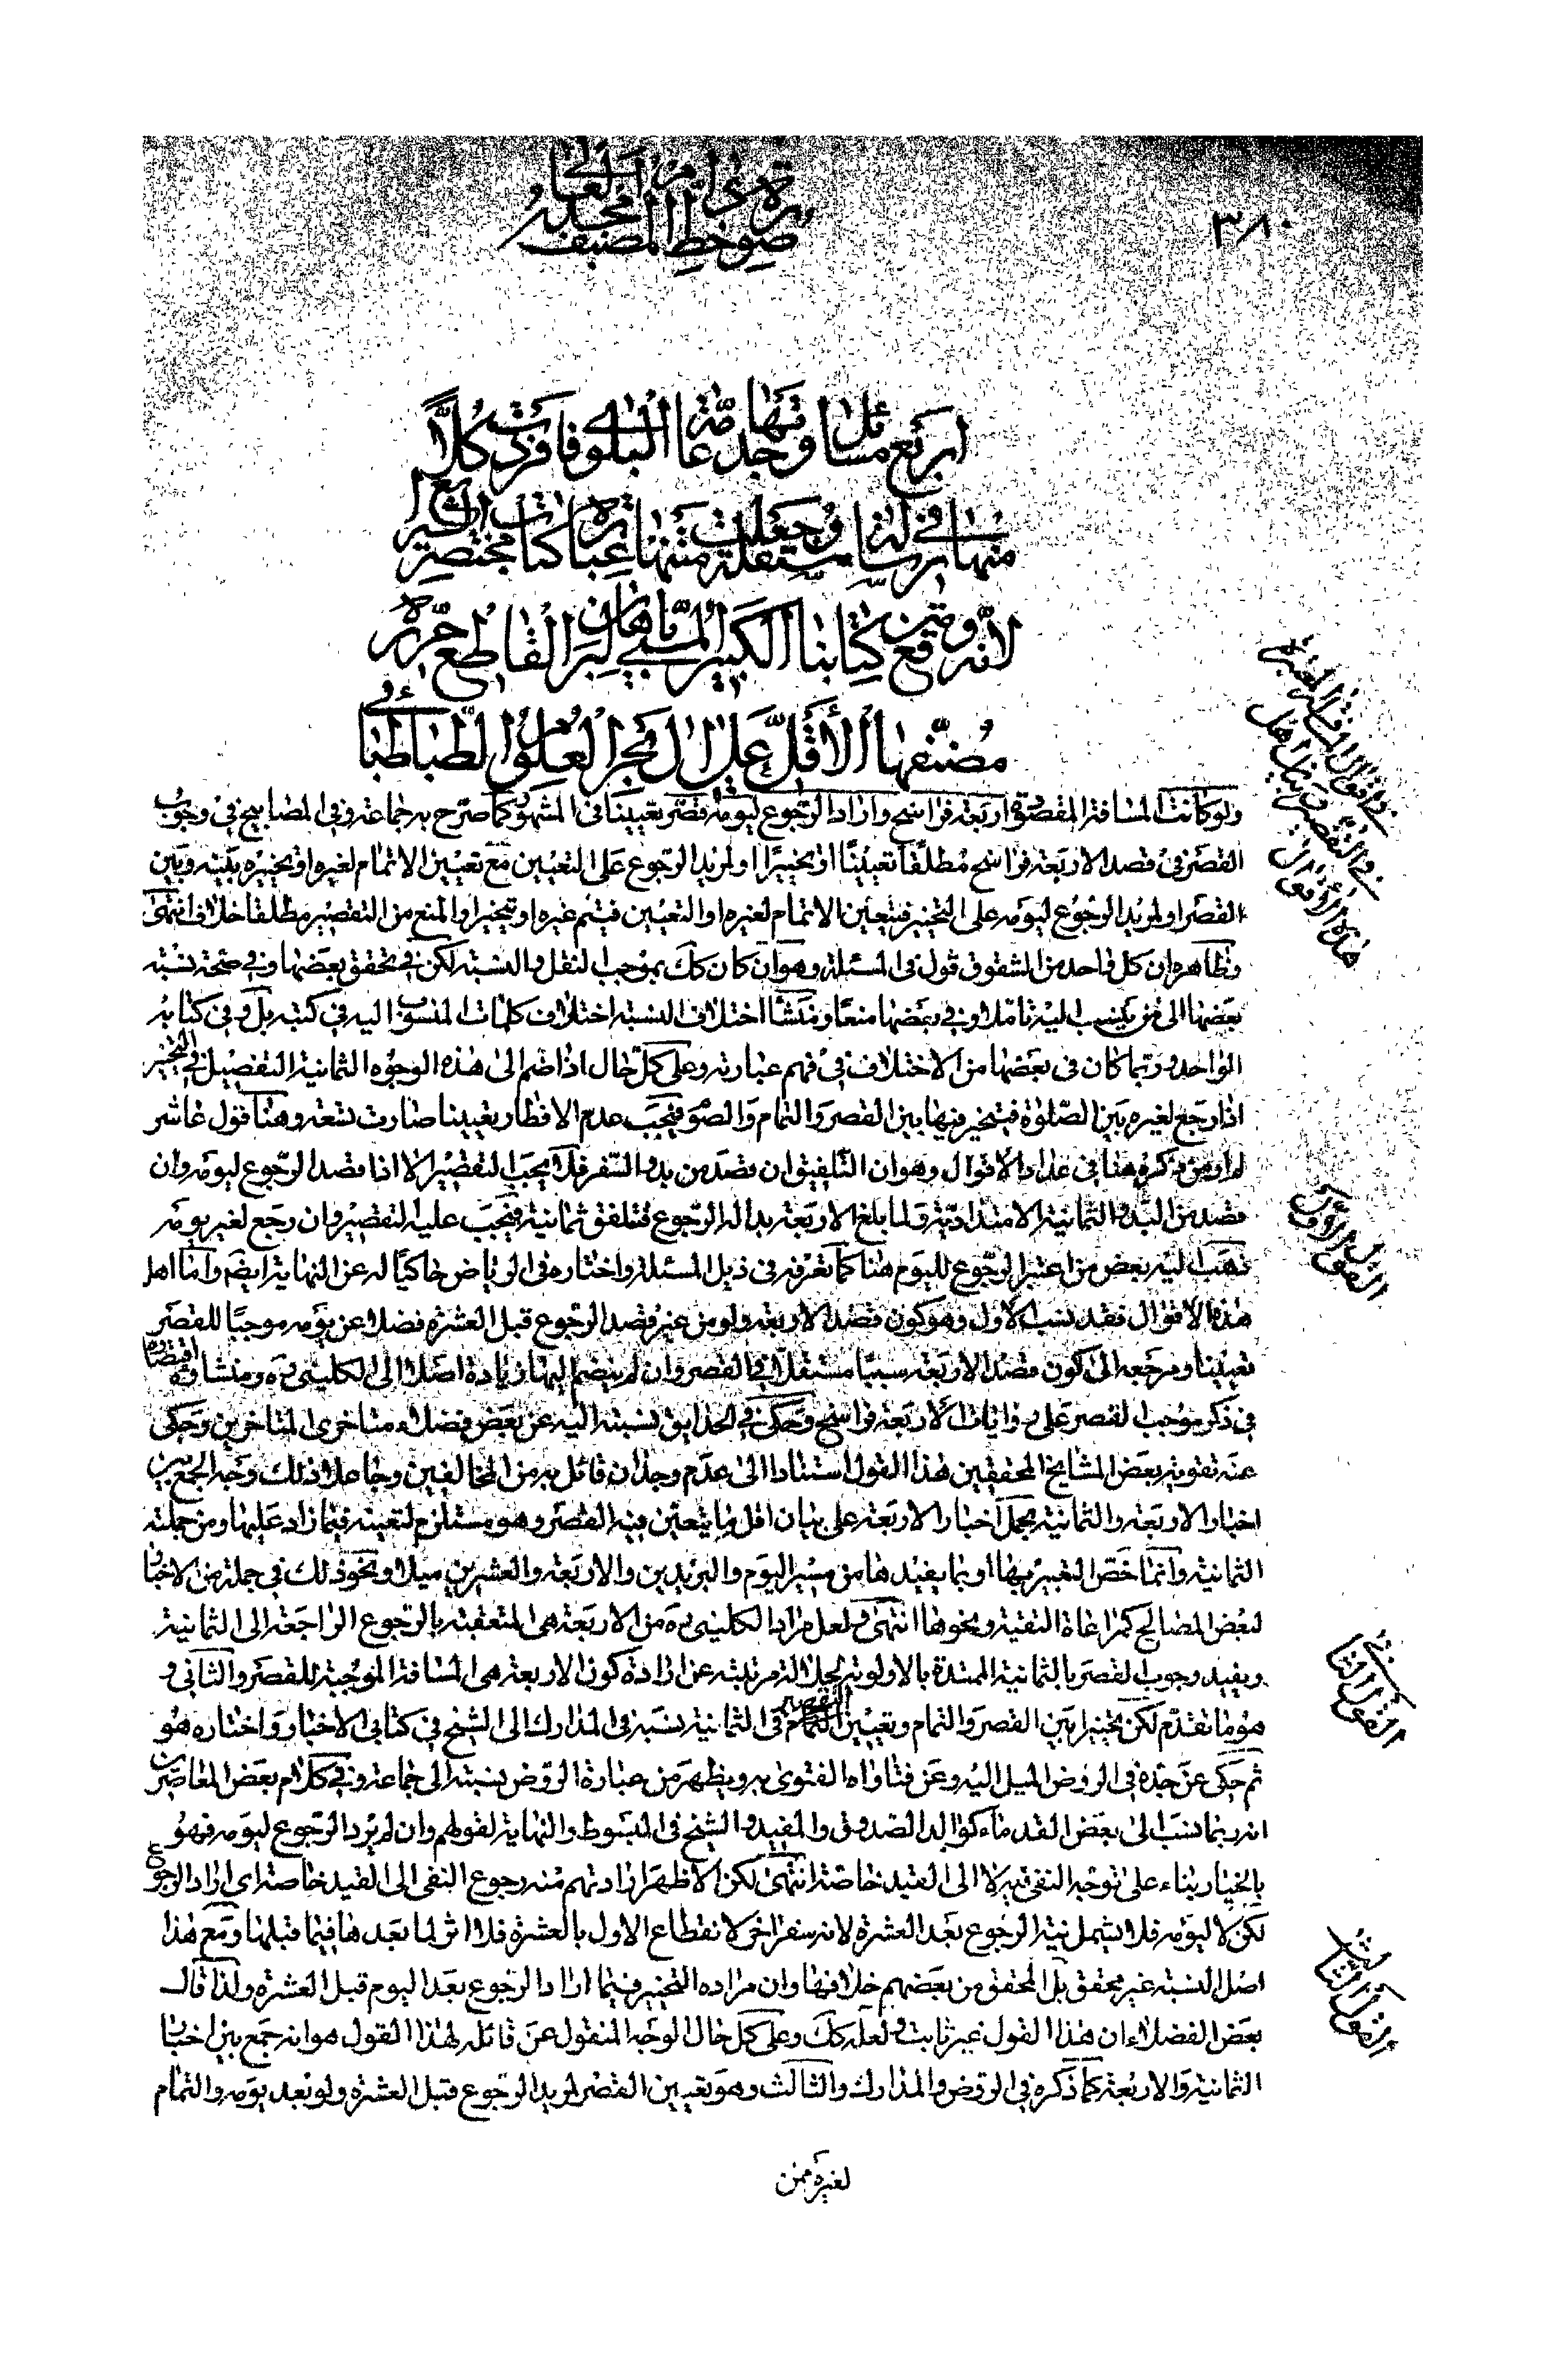 ٣٨٠
صورة خط المصنف
أربع مسائل وجدتها عامة البلوى فأفردت كلا
منها في رسالة مستقلة وجعلت متنها عبارة كتاب مختصر
لأنه وقع كتابنا الكبير المسمى بالبرهان القاطع
مصنفها الأقل علي آل بحر العلوم الطباطبائي
ولو كانت المسافة المقصودة اربعة فراسخ واراد الرجوع ليومه قصر تعيينا في المشهور كما صرح به جماعة وفي المصابيح في وجوب
القصر في قصد الاربعة فراسخ مطلقا تعيينا او تخييرا او لمريد الرجوع على التعيين مع تعيين الاتمام لغيره او تخييره بينه وبين
القصر او لمريد الرجوع ليومه على التخيير فيتعين الاتمام لغيره او التعيين فيتم غيره او تخييرا والمنع من التقصير مطلقا خلاف انتهى
وظاهره ان كل واحد من الشقوق قول في المسئلة وهو ان كان كك بموجب النقل والنسبة لكن في تحقق بعضها وفي صحة نسبة
بعضها الى من ينسب اليه تأملا وفي بعضها منعا ومنشأ اختلاف النسبة اختلاف كلمات المنسوب اليه في كتبه بل وفي كتابه
الواحد وربما كان في بعضها من الاختلاف في فهم عبارته وعلى كل حال اذا ضم الى هذه الوجوه الثمانية التفصيل في التخيير
اذا رجع لغيره بين الصلوة فيتخير فيها بين القصر والتمام والصوم فيجب عدم الافطار تعيينا صارت تسعة وهنا قول عاشر
لم ار من ذكره هنا في عداد الاقوال وهو ان التلفيق ان قصد من بدو السفر فلا يجب التقصير الا اذا قصد الرجوع ليومه وان
قصد من البدو الثمانية الامتدادية ولما بلغ الاربعة بدا له الرجوع فتلفق ثمانية فيجب عليه التقصير وان رجع لغير يومه
ذهب اليه بعض من اعتبر الرجوع لليوم هنا كما تعرفه في ذيل المسئلة واختاره في الرياض حاكيا له عن النهاية ايضا واما اهل
هذه الاقوال فقد نسب الاول وهو كون قصد الاربعة ولو من غير قصد الرجوع قبل العشرة فضلا عن يومه موجبا للقصر
تعيينا ومرجعه الى كون قصد الاربعة سببا مستقلا في القصر وان لم ينضم اليها زيادة اصلا الى الكليني ره ومنشاؤه اقتصاره
في ذكر موجب القصر على روايات الاربعة فراسخ وحكى في الحدايق نسبته اليه عن بعض فضلاء متاخرى المتاخرين وحكى
عنه تقويته بعض المشايخ المحققين لهذا القول استنادا الى عدم وجدان قائل به من المخالفين وجاعلا ذلك وجه الجمع بين
اخبار الاربعة والثمانية بحمل اخبار الاربعة على بيان اقل ما يتعين فيه القصر وهو مستلزم لتعينه فيما زاد عليها ومن جملته
الثمانية وانما خص التعبير بها او بما يفيدها من مسير اليوم والبريدين والاربعة والعشرين ميلا ونحو ذلك في جملة من الاخبار
لبعض المصالح كمراعاة التقية ونحوها انتهى ولعل مراد الكليني ره من الاربعة هي المتعقبة بالرجوع الراجعة الى الثمانية
ويفيد وجوب القصر بالثمانية الممتدة بالاولوية لجلالة مرتبته عن ارادة كون الاربعة هي المسافة الموجبة للقصر والثاني و
هو ما تقدم لكن تخييرا بين القصر والتمام وتعيين التقصير في الثمانية نسبه في المدارك الى الشيخ في كتابي الاخبار واختاره هو
ثم حكى عن جده في الروض الميل اليه وعن فتاواه الفتوى به ويظهر من عبارة الروض نسبته الى جماعة وفي كلام بعض المعاصرين
انه ربما نسب الى بعض القدماء كوالد الصدوق والمفيد والشيخ في المبسوط والنهاية لقولهم وان لم يرد الرجوع ليومه فهو
بالخيار بناء على توجه النفي فيه لا الى القيد خاصة انتهى لكن الاظهر ارادتهم منه رجوع النفي الى القيد خاصة اى اراد الرجوع
لكن لا ليومه فلا يشمل نية الرجوع بعد العشرة لانه سفر اخر لانقطاع الاول بالعشرة فلا اثر لما بعدها فيما قبلها ومع هذا
اصل النسبة غير محقق بل المحقق من بعضهم خلافها وان مراده التخيير فيما اراد الرجوع بعد اليوم قبل العشرة ولذا قال
بعض الفضلاء ان هذا القول غير ثابت ولعله كك وعلى كل حال الوجه المنقول عن قائله لهذا القول هو انه جمع بين اخبار
الثمانية والاربعة كما ذكره في الروض والمدارك والثالث وهو تعيين القصر لمريد الرجوع قبل العشرة ولو بعد يومه والتمام
لغيره ممن
القول الاول
القول الثاني
القول الثالث